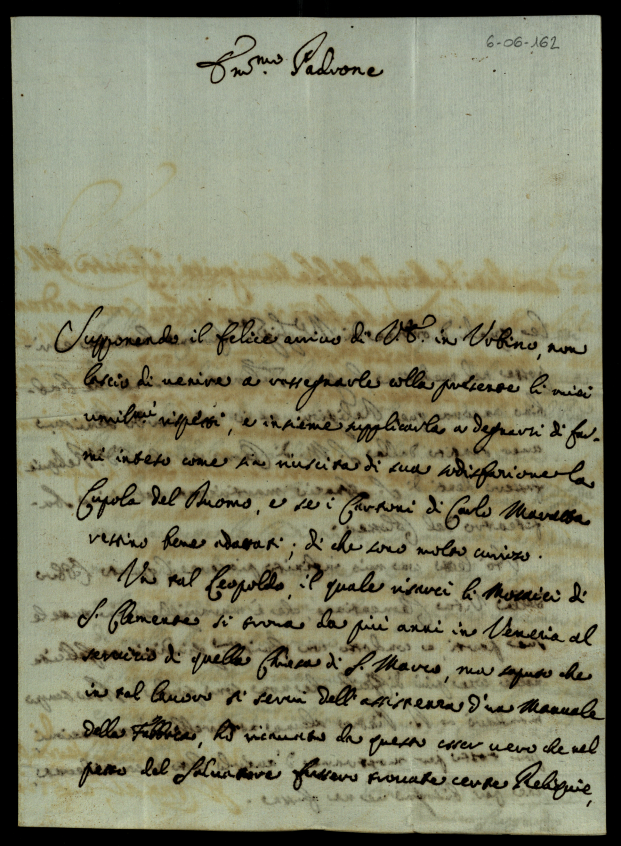 6-06-162
Em.mo Padrone
Supponendo il felice arrivo di V.E. in Urbino, non
lascio di venire a rassegnarle colla presente li miei
umil.mi rispetti, e insieme supplicarla a degnarsi di far-
mi inteso come sia riuscita di sua sodisfazione la
Cupola del Duomo, e se i Cartoni di Carlo Maratta
restino bene adattati; di che sono molto curioso.
Un tal Leopoldo, il quale risarcì li Mosaici di
S. Clemente si trova da più anni in Venezia al
servizio di quella Chiesa di S. Marco, ma saputo che
in tal lavoro si servì dell'assistenza d'un Manuale
della Fabbrica, hò ricavato da questo esser vero che nel
petto del Salvatore fussero trovate certe Reliquie,